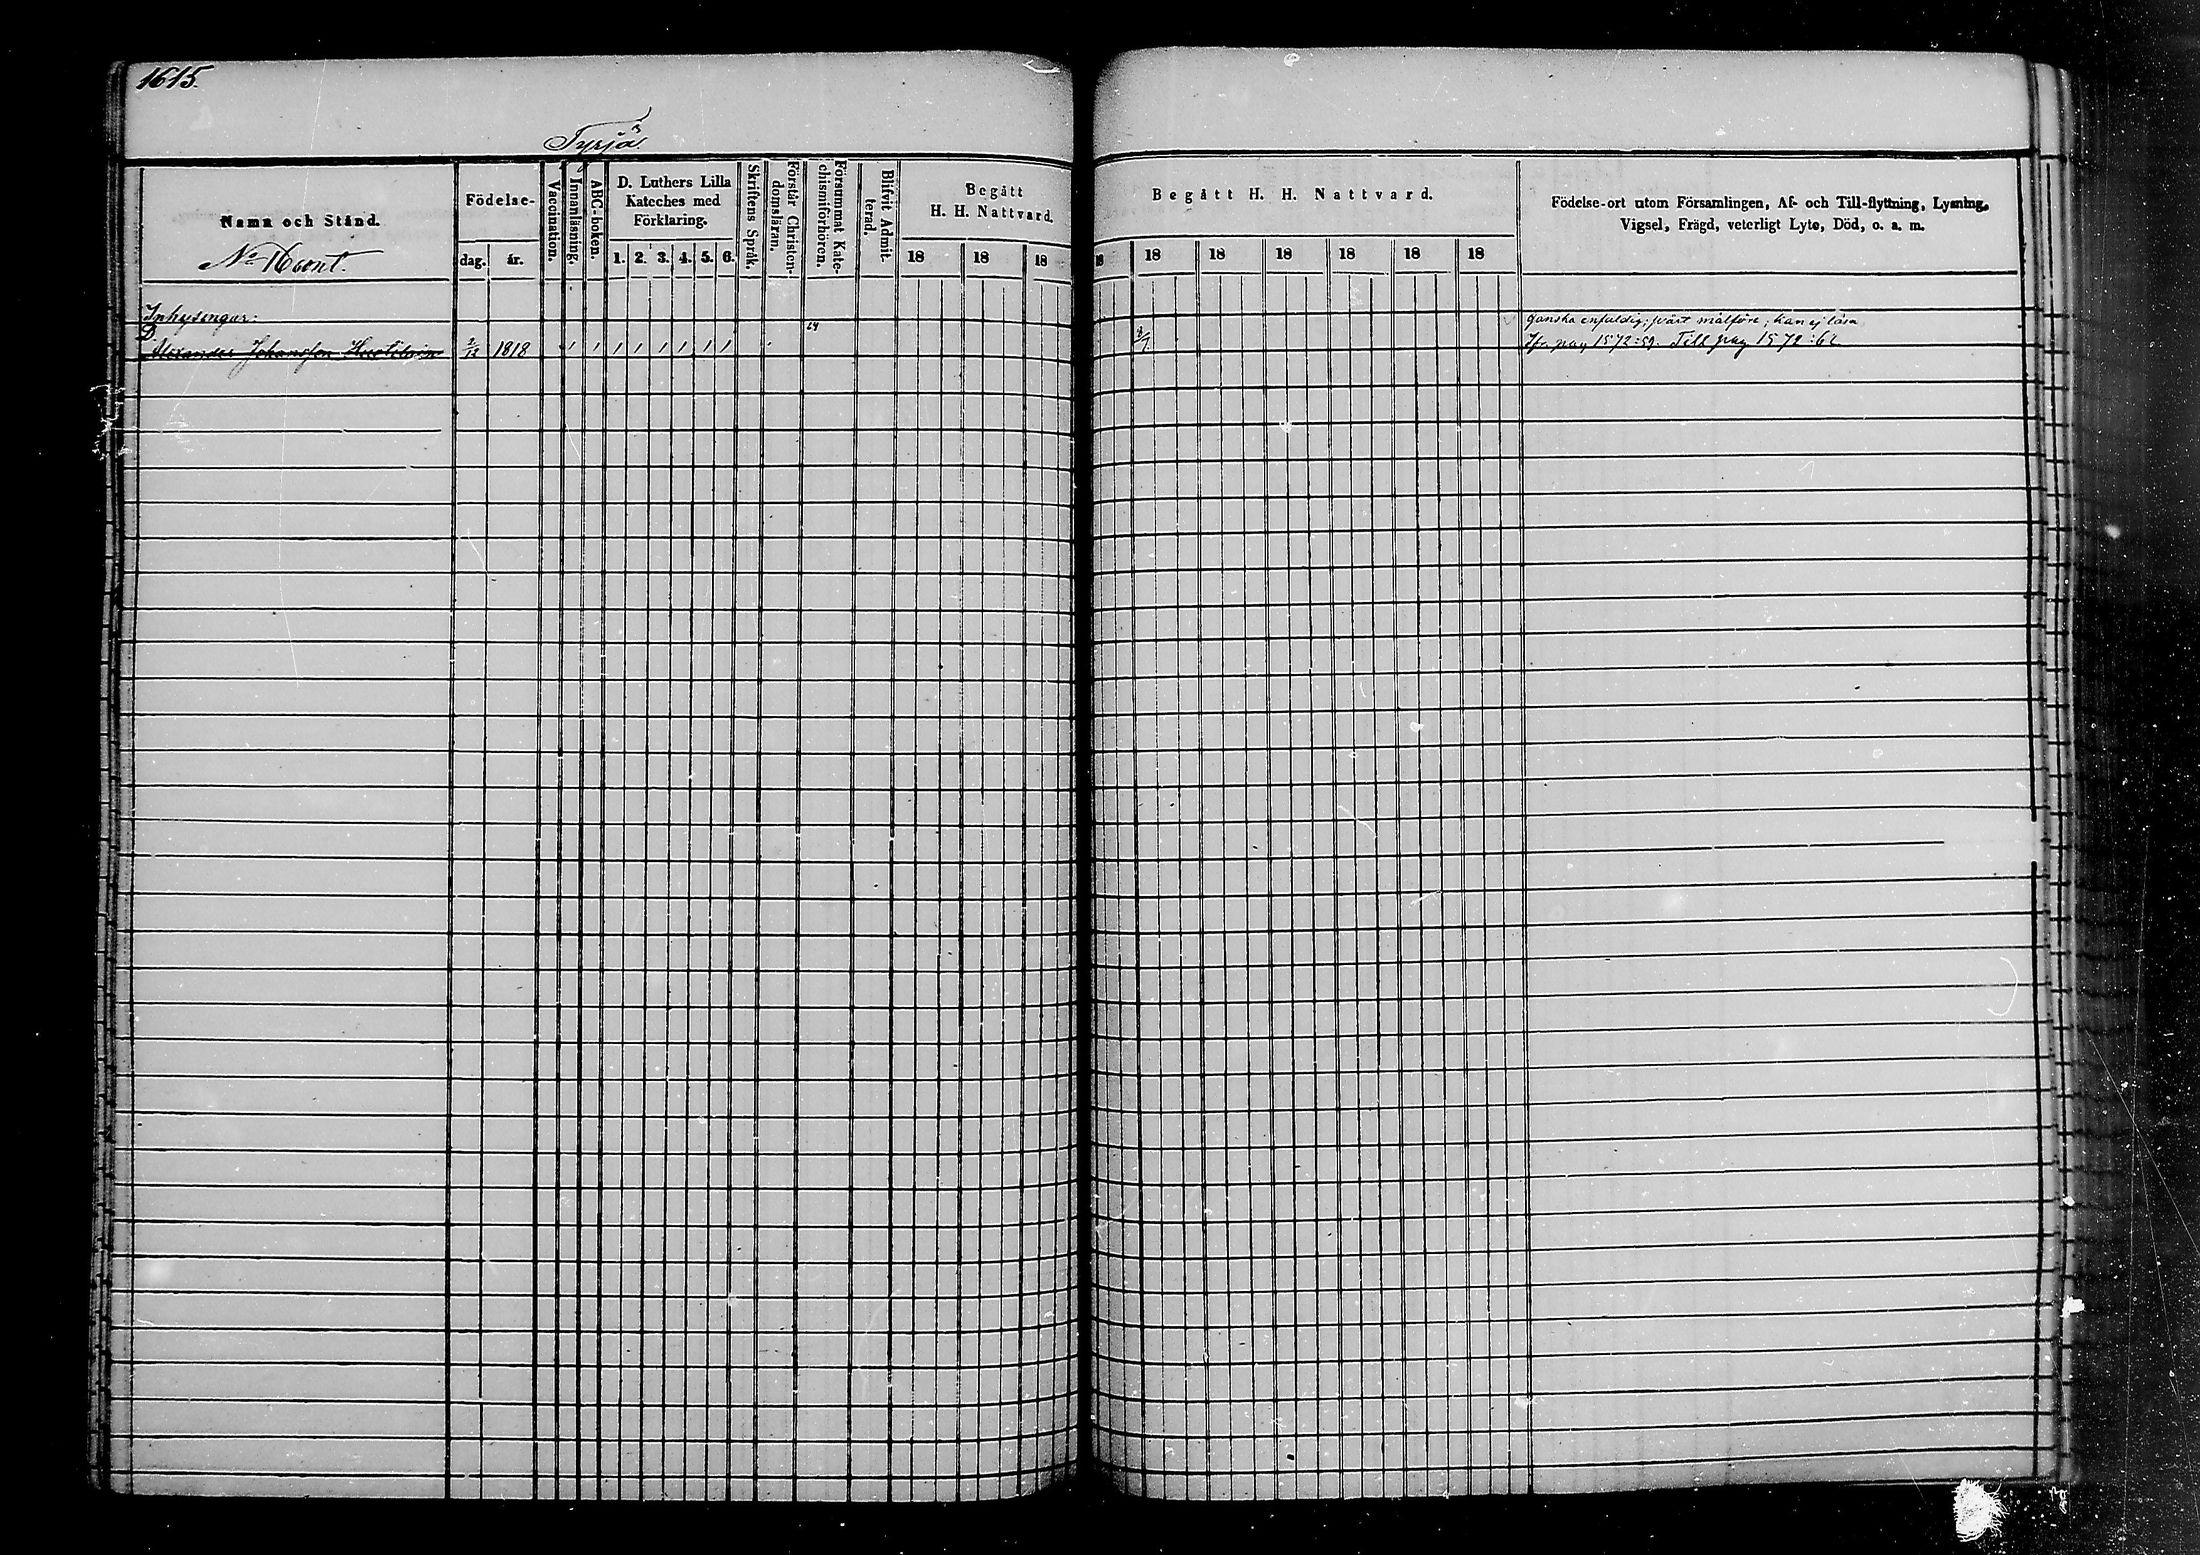 1615.
Tyrjä
Namn och Stånd.
Födelse-
dag.
år.
Vaccination.
Innanläsning.
ABC-boken.
D. Luthers Lilla
Kateches med
Förklaring.
1. 2. 3. 4. 5. 6.
Skriftens Språk.
Förstår Christen-
domsläran.
Försummat Kate-
chismiförhören.
Blifvit Admit-
terad.
Begått
H. H. Nattvard.
18 18 18
Begått H. H. Nattvard.
18 18 18 18 18 18 18
Födelse-ort utom Församlingen, Af- och Till-flyttning, Lysning,
Vigsel, Frägd, veterligt Lyte, Död, o. a. m.
Inhysingar:
D.
64
ganska enfaldig; svårt målföre; kan ej läsa
Alexander Johansson 2/12 1818 8/7 Ifr. pag 1572:59. Till pag 1572:62